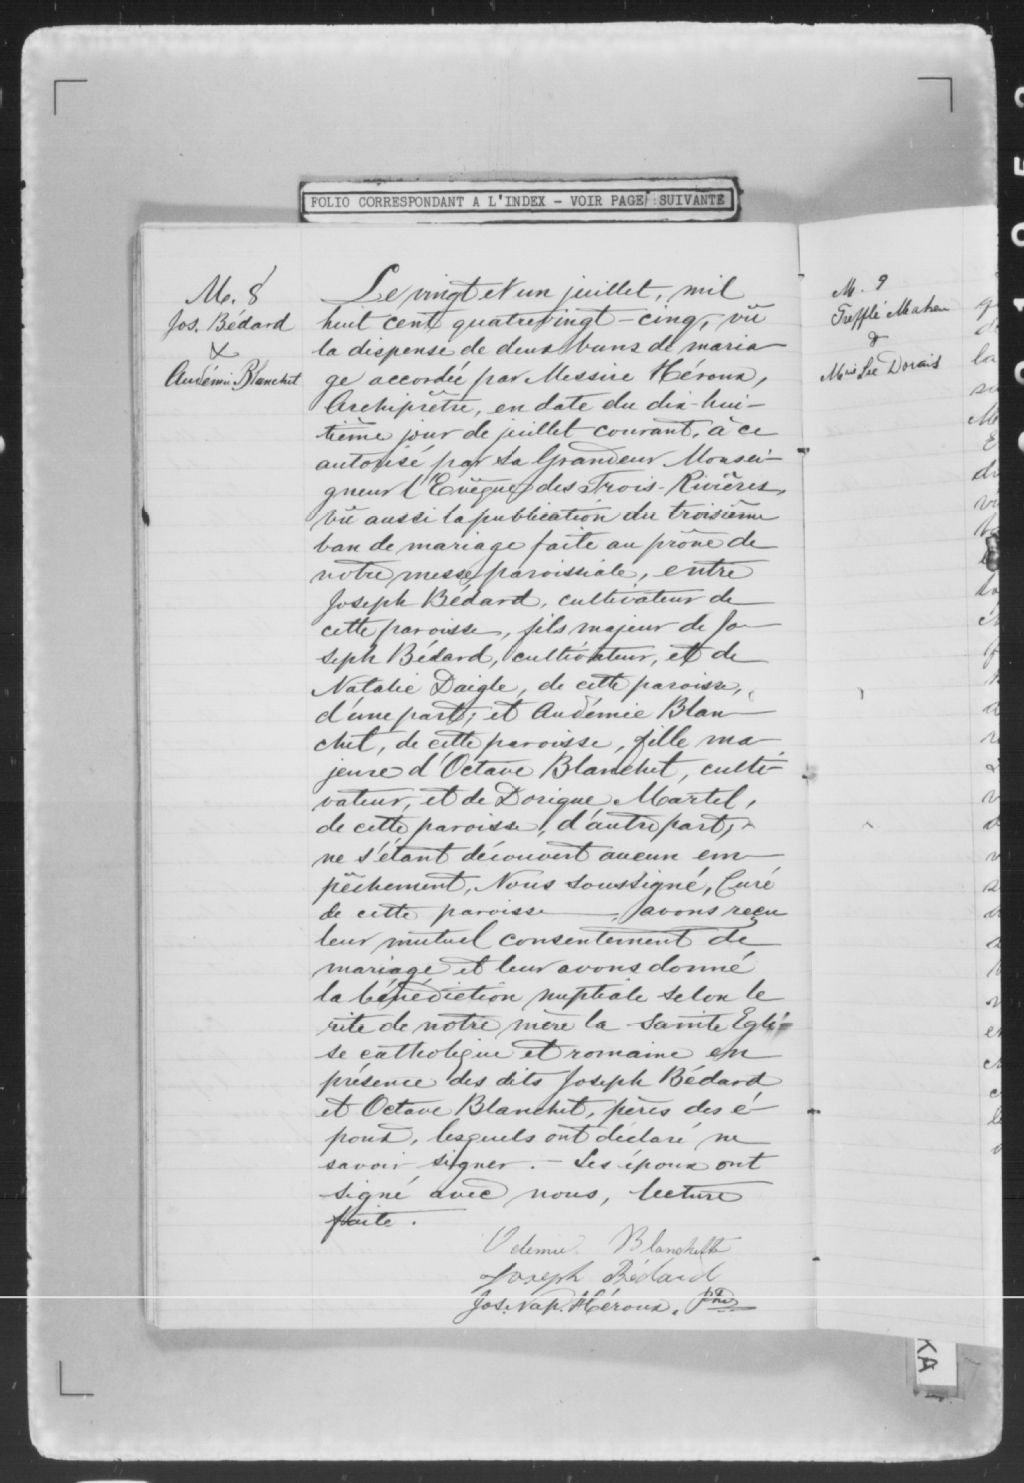 FOLIO CORRESPONDANT A L'INDEX - VOIR PAGE SUIVANTE
M. 8
Jos. Bédard
&
Audémie Blanchet
Le vingt et un juillet, mil
huit cent quatrevingt-cinq, vû
la dispense de deux bans de maria-
ge accordée par Messire Héroux,
Archiprêtre, en date du dix-hui-
tième jour de juillet courant, à ce
autorisé par Sa Grandeur Monsei-
gneur l'Evêque des Trois-Rivières,
vû aussi la publication du troisième
ban de mariage faite au prône de
notre messe paroissiale, entre
Joseph Bédard, cultivateur de
cette paroisse, fils majeur de Jo-
seph Bédard, cultivateur, et de
Natalie Daigle, de cette paroisse,
d'une part; et Audémie Blan-
chet, de cette paroisse, fille ma-
jeure d'Octave Blanchet, culti-
vateur, et de Dorique Martel,
de cette paroisse, d'autre part;
ne s'étant découvert aucun em-
pêchement, Nous soussigné, Curé
de cette paroisse, avons reçu
leur mutuel consentement de
mariage et leur avons donné
la bénédiction nuptiale selon le
rite de notre mère la Sainte Egli-
se catholique et romaine en
présence des dits Joseph Bédard
et Octave Blanchet, pères des é-
poux, lesquels ont déclaré ne
savoir signer. - Les époux ont
signé avec nous, lecture
faite.
Odemie Blanchette
Joseph Bédard
Jos. Nap. Héroux, Ptre
M. 9
Trefflé Maheu
&
Dorais
KA